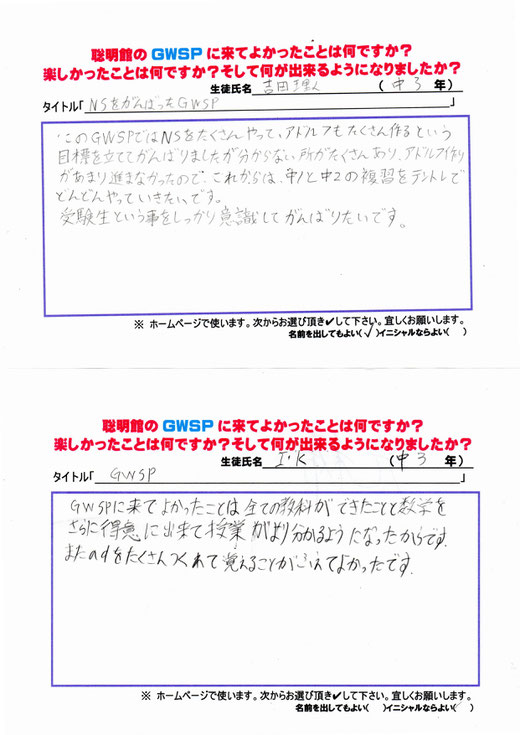 聡明館のGWSPに来てよかったことは何ですか？
楽しかったことは何ですか？そして何が出来るようになりましたか？
生徒氏名 吉田理人 （中3年）
タイトル「NSをがんばったGWSP」
このGWSPではNSをたくさんやって、アドルフもたくさん作るという
目標を立ててがんばりましたが分からない所がたくさんあり、アドルフ作り
があまり進まなかったので、これからは、中1と中2の複習をテントレで
どんどんやっていきたいです。
受験生という事をしっかり意識してがんばりたいです。
※ ホームページで使います。次からお選び頂き✔して下さい。宜しくお願いします。
名前を出してもよい(✓)イニシャルならよい( )
聡明館のGWSPに来てよかったことは何ですか？
楽しかったことは何ですか？そして何が出来るようになりましたか？
生徒氏名 I・K （中3年）
タイトル「GWSP」
GWSPに来てよかったことは全ての教科ができたことと数学を
さらに得意に出来て授業がより分かるようになったからです。
またadをたくさんつくれて覚えることがふえてよかったです。
※ ホームページで使います。次からお選び頂き✔して下さい。宜しくお願いします。
名前を出してもよい( )イニシャルならよい( )